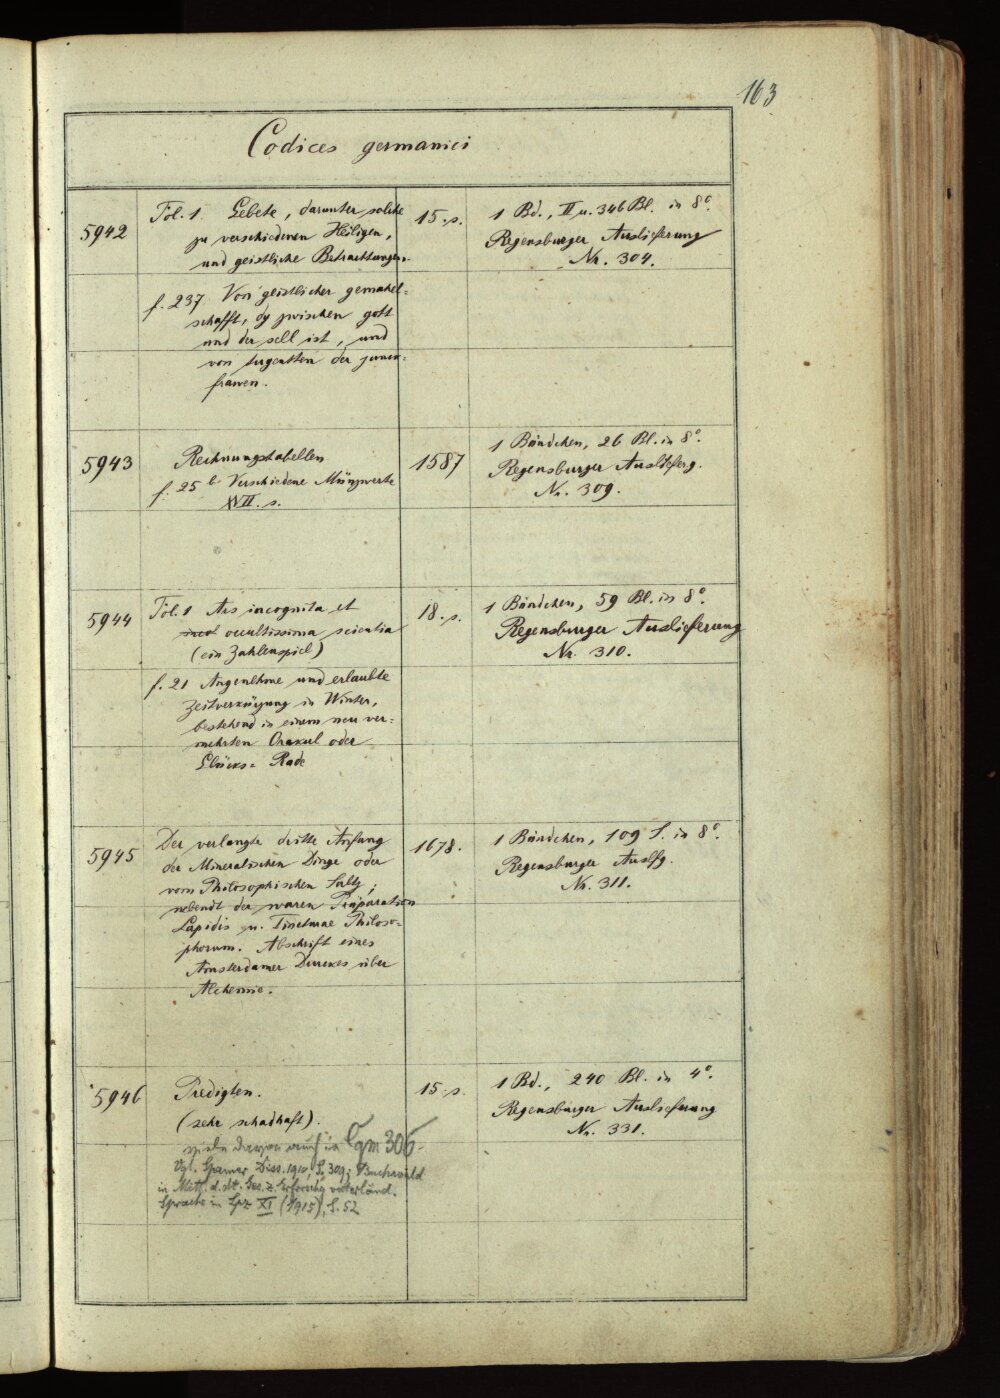 163
Codices germanici
5942
Fol. 1. Gebete, darunter solche
zu verschiedenen Heiligen,
und geistliche Betrachtungen.
f. 237 Von geistlicher gemahel-
schafft, dy zwischen gott
und der sell ist, und
von tugentten der junck-
frawen.
15. s.
1 Bd., II u. 346 Bl. in 8°.
Regensburger Auslieferung
Nr. 304.
5943
Rechnungstabellen
f. 25 b Verschiedene Münzwerte
XVII. s.
1587
1 Bändchen, 26 Bl. in 8°.
Regensburger Auslieferg.
Nr. 309.
5944
Fol. 1 Ars incognita et
occultissima scientia
(ein Zahlenspiel)
f. 21 Angenehme und erlaubte
Zeitverkürzung in Winter,
bestehend in einem neu ver-
mehrten Orakul oder
Glücks-Rade
18. s.
1 Bändchen, 59 Bl. in 8°.
Regensburger Auslieferung
Nr. 310.
5945
Der verlangte dritte Anfang
der Mineralischen Dinge oder
vom Philosophischen Saltz;
nebendt der waren Präparation
Lapidis u. Tincturae Philoso-
phorum. Abschrift eines
Amsterdamer Druckes über
Alchemie.
1678.
1 Bändchen, 109 S. in 8°.
Regensburger Auslfg.
Nr. 311.
5946
Predigten.
(sehr schadhaft).
viele davon auch in Cgm 306.
Vgl. Spamer, Diss. 1910, S. 309; Buchwald
in Mitt. d. dt. Ges. z. Erforschg vaterländ.
Sprache in Lpz XI (1915), S. 52
15. s.
1 Bd., 240 Bl. in 4°.
Regensburger Auslieferung
Nr. 331.